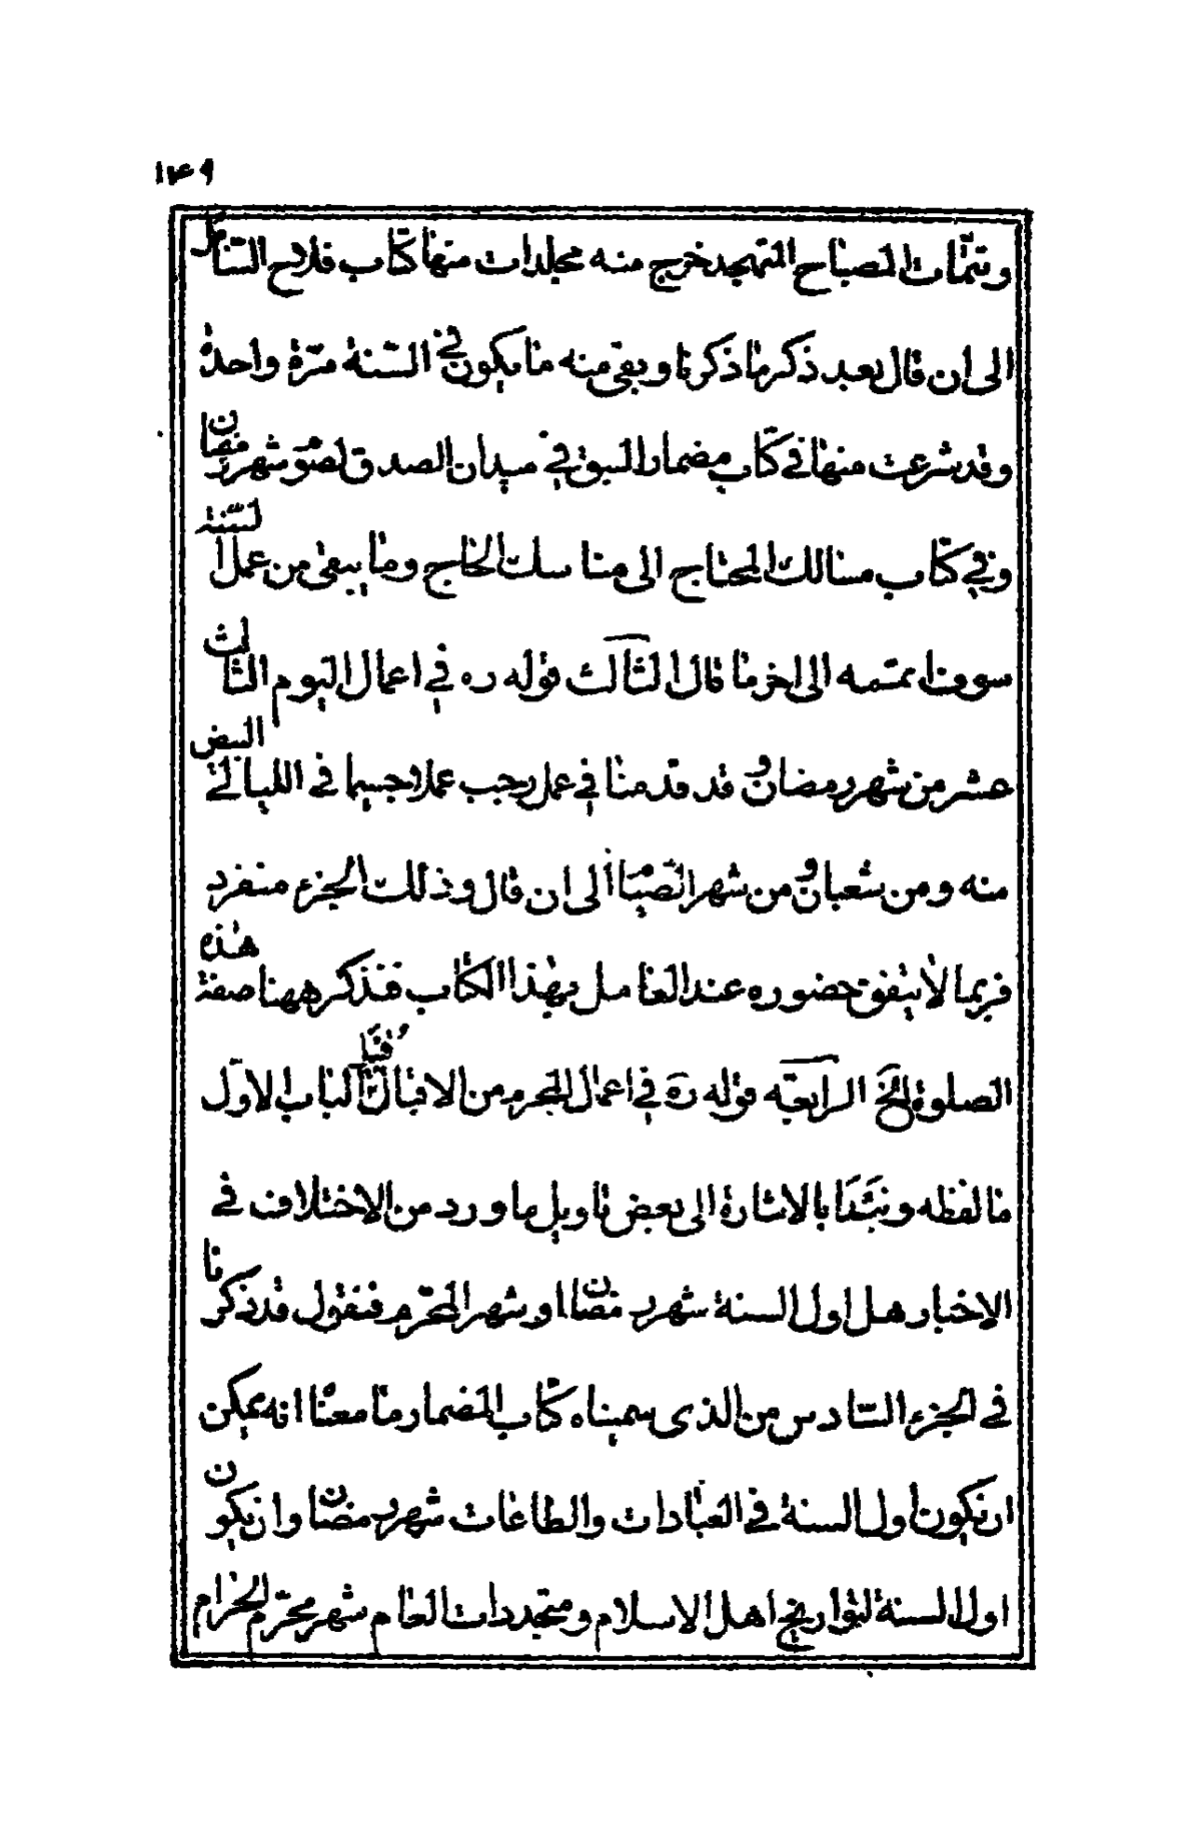 ١٤٩
وتتمّات المصباح المتهجد خرج منه مجلدات منها كتاب فلاح السائل
الى ان قال بعد ذكر ما ذكرنا وبقى منه ما يكون في السّنة مرّة واحدة
وقد شرعت منها في كتاب مضمار السبق في ميدان الصدق لصوم شهر رمضان
وفي كتاب مسالك المحتاج الى مناسك الحاج وما يبقى من عمل السّنة
سوف نتمّمه الى اخر ما قال الثالث قوله ره في اعمال اليوم الثالث
عشر من شهر رمضان وقد قدمنا في عمل رجب عملا جسيما في الليالي البيض
منه ومن شعبان ومن شهر الصّيام الى ان قال وذلك الجزء منفرد
فربما لا يتفق حضوره عند العامل بهذا الكتاب فنذكر ههنا صفة هذه
الصلوة الخ الرابعة قوله ره في اعمال المحرم من الاقبال في الباب الاوّل
ما لفظه ونبتدأ بالاشارة الى بعض تاويل ما ورد من الاختلاف في
الاخبار هل اول السنة شهر رمضان او شهر المحرّم فنقول قد ذكرنا
في الجزء السّادس من الذى سميناه كتاب المضمار ما معناه انه يمكن
ان يكون اول السنة في العبادات والطاعات شهر رمضان وان يكون
اول السنة لتواريخ اهل الاسلام ومتجددات العام شهر محرّم الحرام